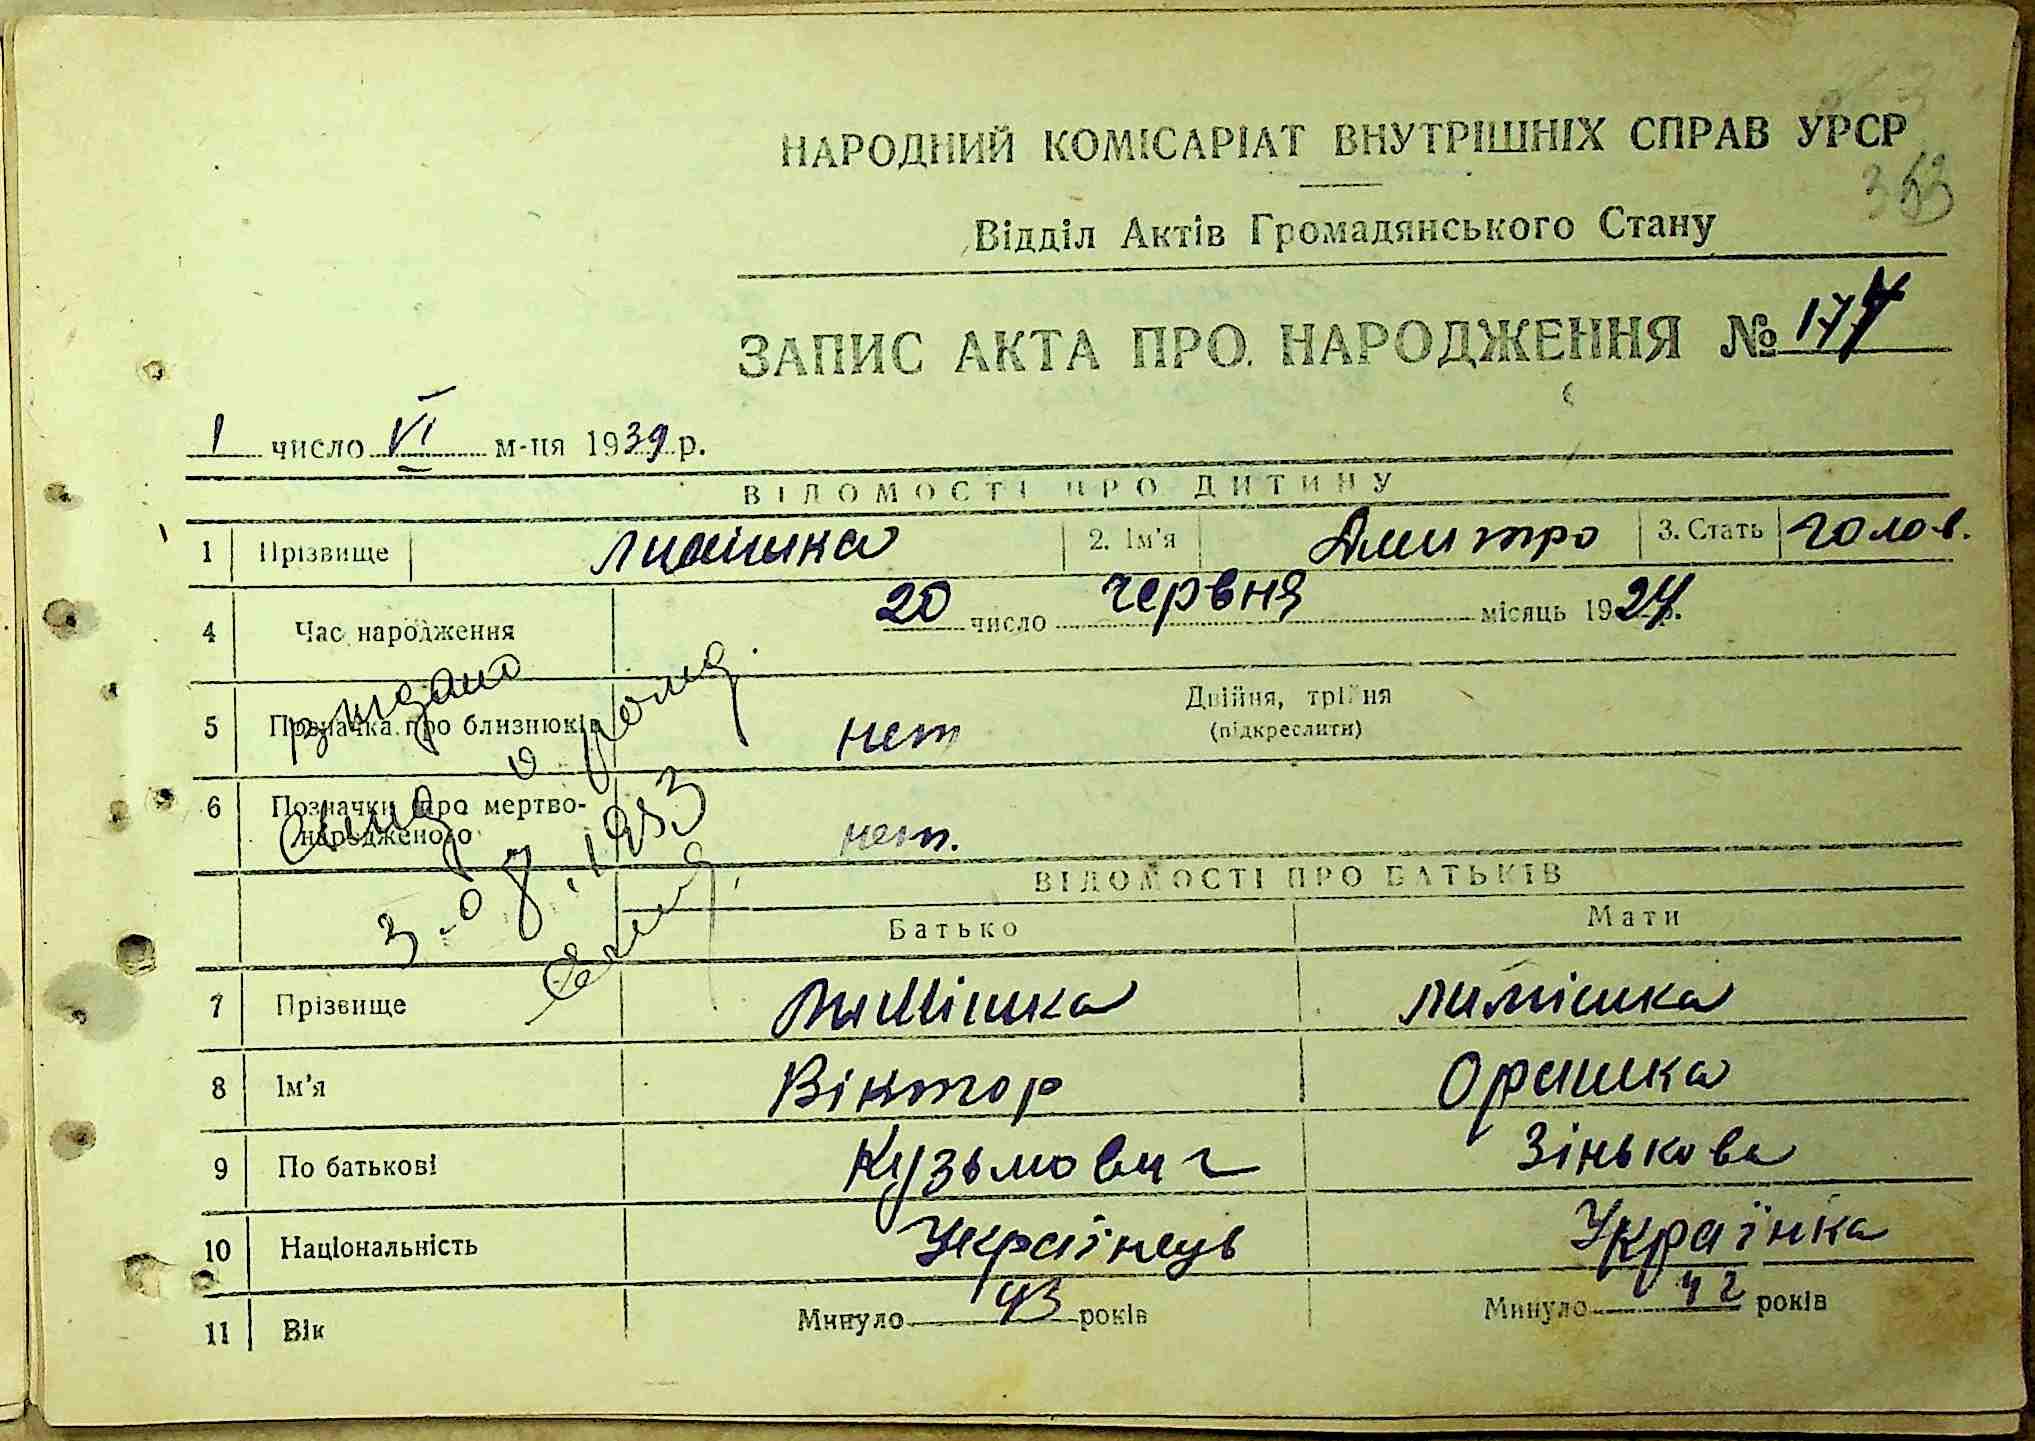 НАРОДНИЙ КОМІСАРІАТ ВНУТРІШНІХ СПРАВ УРСР
Відділ Актів Громадянського Стану
ЗАПИС АКТА ПРО НАРОДЖЕННЯ №
1 число VI м-ця 1939 р.
ВІДОМОСТІ ПРО ДИТИНУ
1 Прізвище 2. Ім'я Дмитро 3. Стать голов.
4 Час народження 20 число червня місяць 1924 р.
5 Позначка про близнюків нет Двійня, трійня
(підкреслити)
6 Позначки про мертво-
народженого нет.
ВІДОМОСТІ ПРО БАТЬКІВ
Батько Мати
7 Прізвище Лимішка Лимішка
8 Ім'я Віктор Оришка
9 По батькові Кузьмович Зінькова
10 Національність Українець Українка
11 Вік Минуло 43 років Минуло 42 років